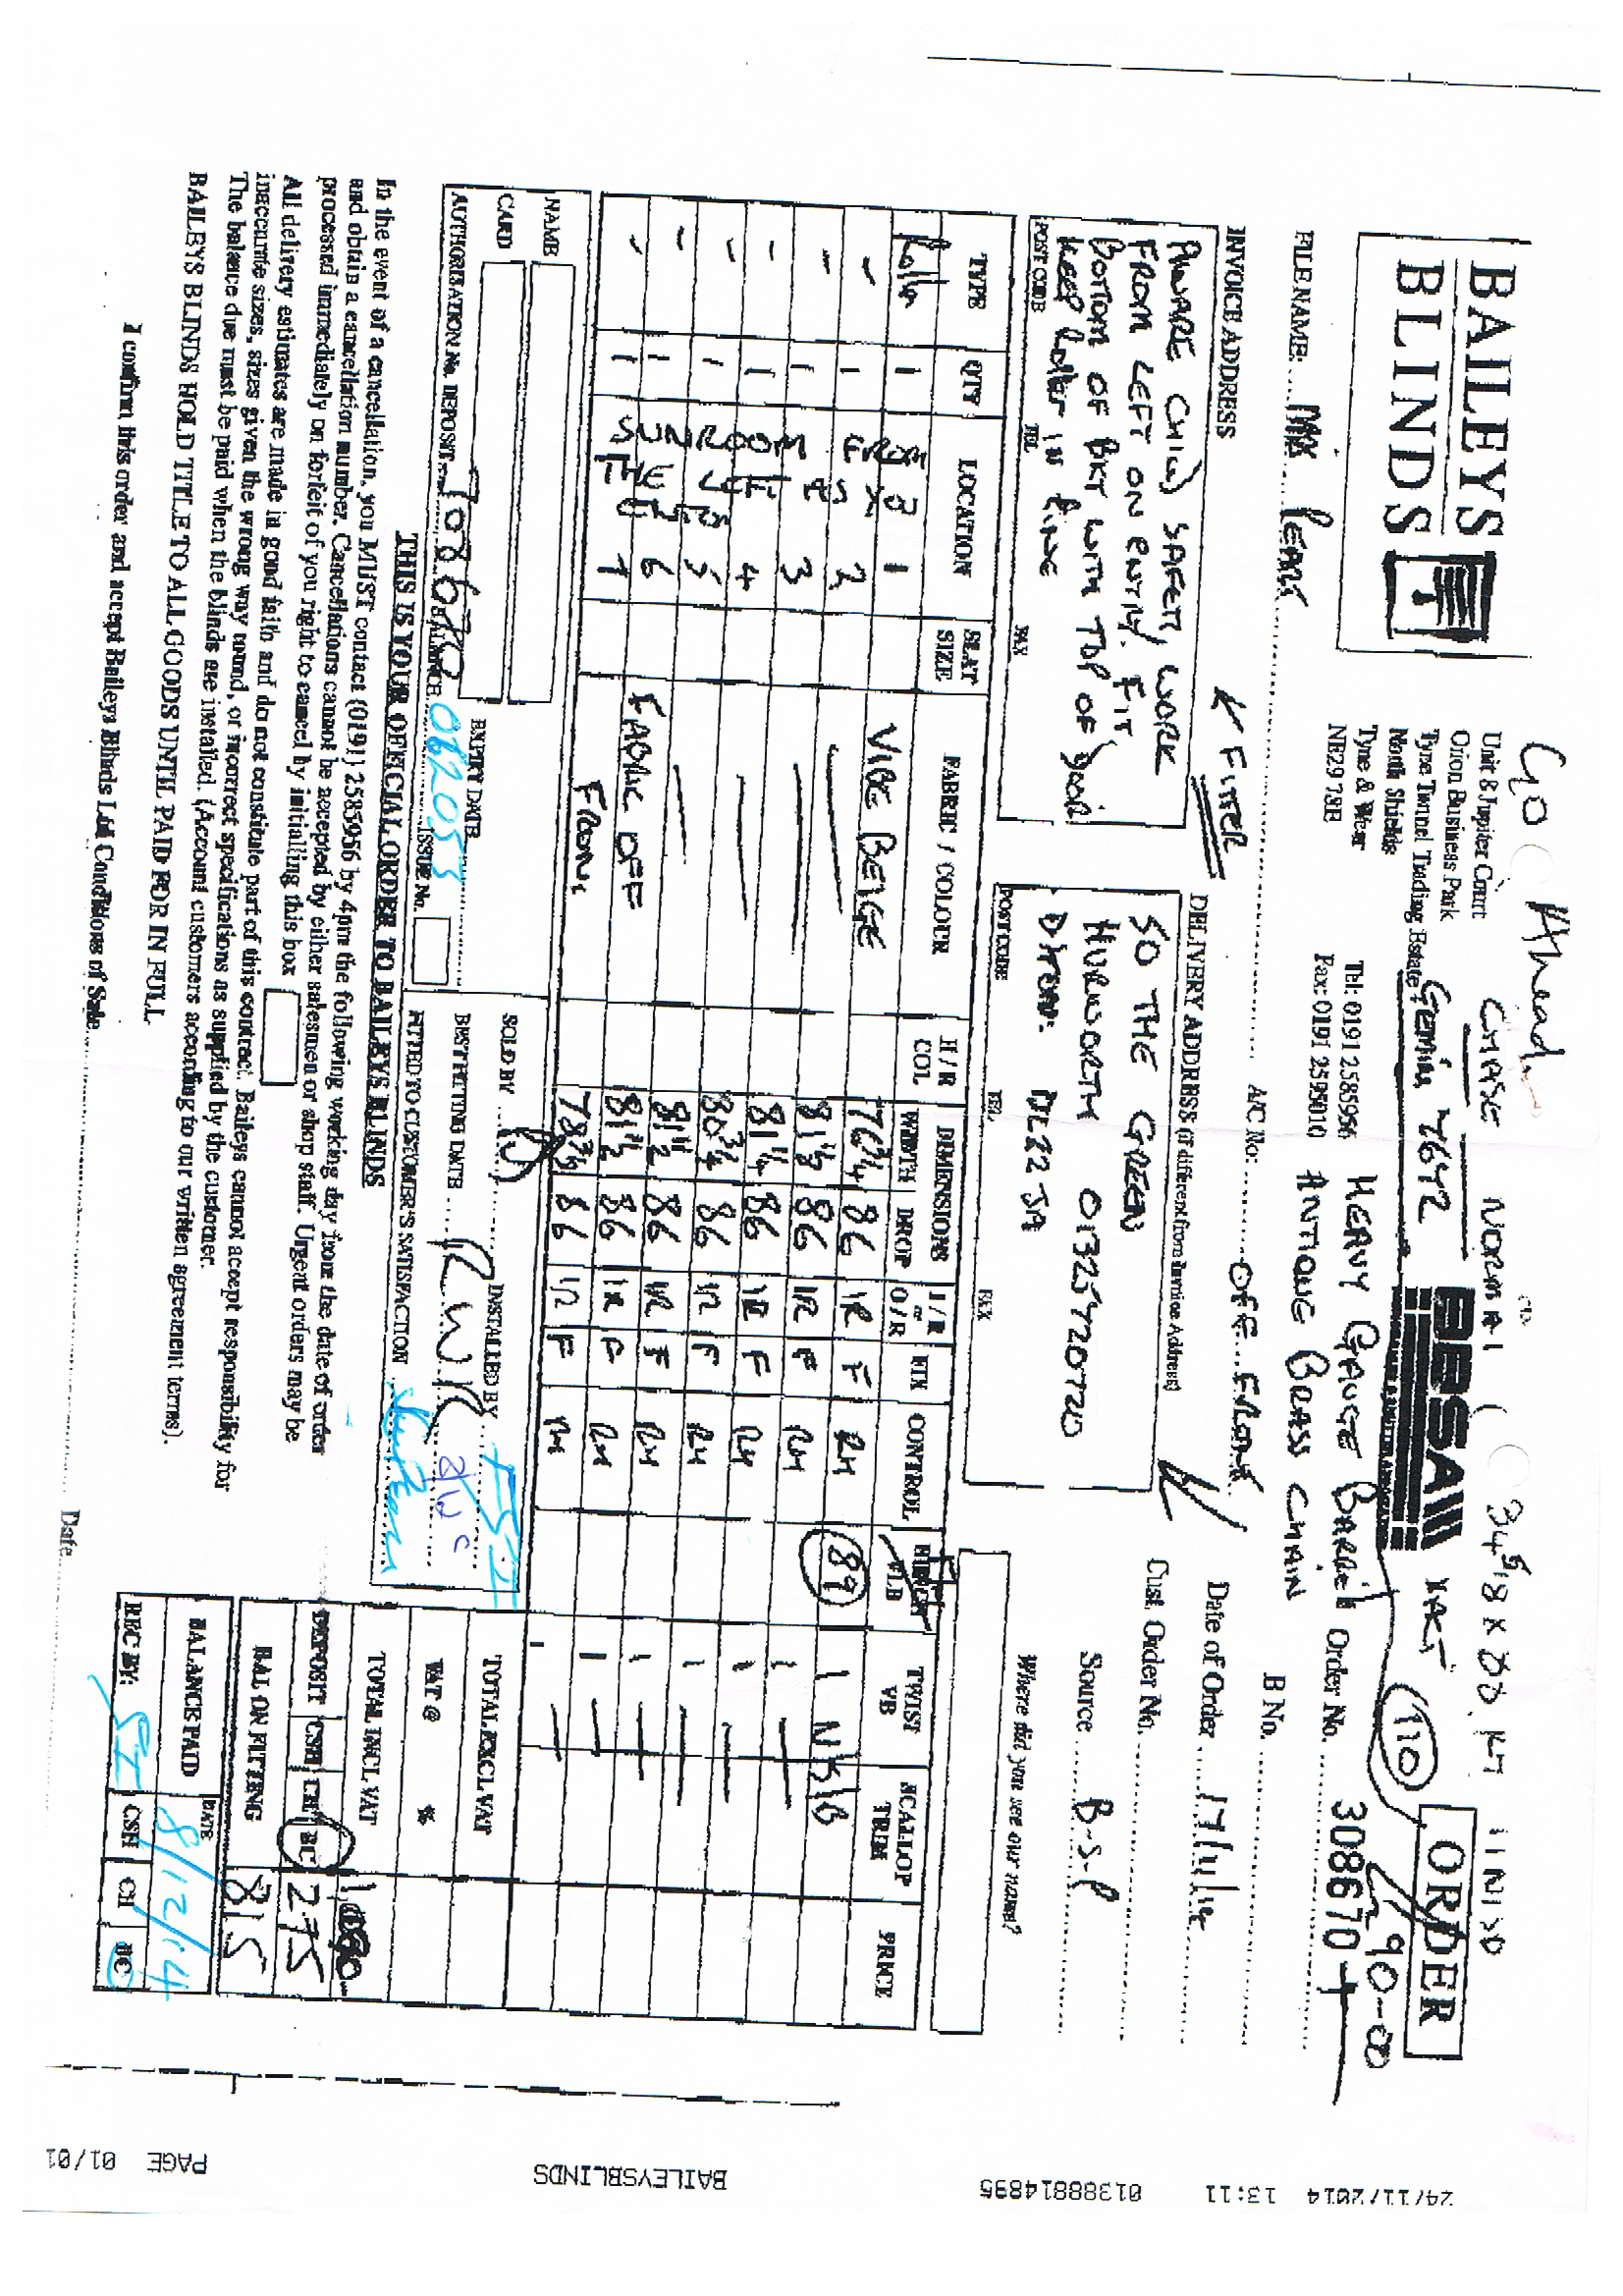 Go Ahead.
CHASE NORMAL ( 34 5/8 x
BAILEYS
BLINDS
Unit 8 Jupiter Court
Orion Business Park
Tyne Tunnel Trading Estate
North Shields
Tyne & Wear
NE29 7SE
Tel: 0191 2585956
Fax: 0191 2595010
BBSA
HEAVY GAUGE BARREL
ANTIQUE BRASS CHAIN
110
ORDER
90-00
Order No. 308670
B No.
FILE NAME: PEARK
A/C No: OFF FRONT
INVOICE ADDRESS
← FITTER
AWARE CHILD SAFETY, WORK
FROM LEFT ON ENTRY. FIT
BOTTOM OF BKT WITH TOP OF DOOR
KEEP ROLLER IN LINE
POST CODE TEL FAX
DELIVERY ADDRESS (if different from Invoice Address)
50 THE GREEN
HURWORTH 01325720720
DL2 2JA
POST CODE TEL FAX
Date of Order 17/11/14
Cust. Order No.
Source B-S-P
Where did you see our name?
TYPE QTY LOCATION SLAT SIZE FABRIC / COLOUR H / R COL DIMENSIONS WIDTH DROP I / R or O / R FIX CONTROL TWIST VB SCALLOP TRIM PRICE
Roller 1 1 VIBE BEIGE 76 3/4 86 IR F RH 89
" 1 2 81 1/8 86 IR F RH
" 1 3 81 1/4 86 IR F RH
" 1 4 80 3/4 86 IR F RH
" 1 5 81 1/2 86 IR F RH
" 1 6 FABRIC OFF 81 1/2 86 IR F RH
" 1 7 FRONT 78 3/8 86 IR F RH
SUNROOM
NAME
CARD
EXPIRY DATE
AUTHORISATION No. DEPOSIT 708680 BALANCE 062053 ISSUE No.
SOLD BY
INSTALLED BY
BEST FITTING DATE
FITTED TO CUSTOMER'S SATISFACTION
TOTAL EXCL VAT
VAT @ %
TOTAL INCL VAT 1090
DEPOSIT CSH CH BC 275
BAL ON FITTING 815
BALANCE PAID DATE 8/12/14
REC BY: SI CSH CH BC
THIS IS YOUR OFFICIAL ORDER TO BAILEYS BLINDS
In the event of a cancellation, you MUST contact (0191) 2585956 by 4pm the following working day from the date of order
and obtain a cancellation number. Cancellations cannot be accepted by either salesmen or shop staff. Urgent orders may be
processed immediately on forfeit of you right to cancel by initialling this box
All delivery estimates are made in good faith and do not constitute part of this contract. Baileys cannot accept responsibility for
inaccurate sizes, sizes given the wrong way round, or incorrect specifications as supplied by the customer.
The balance due must be paid when the blinds are installed. (Account customers according to our written agreement terms).
BAILEYS BLINDS HOLD TITLE TO ALL GOODS UNTIL PAID FOR IN FULL
I confirm this order and accept Baileys Blinds Ltd Conditions of Sale Date
24/11/2014 13:11 01388814895 BAILEYSBLINDS PAGE 01/01